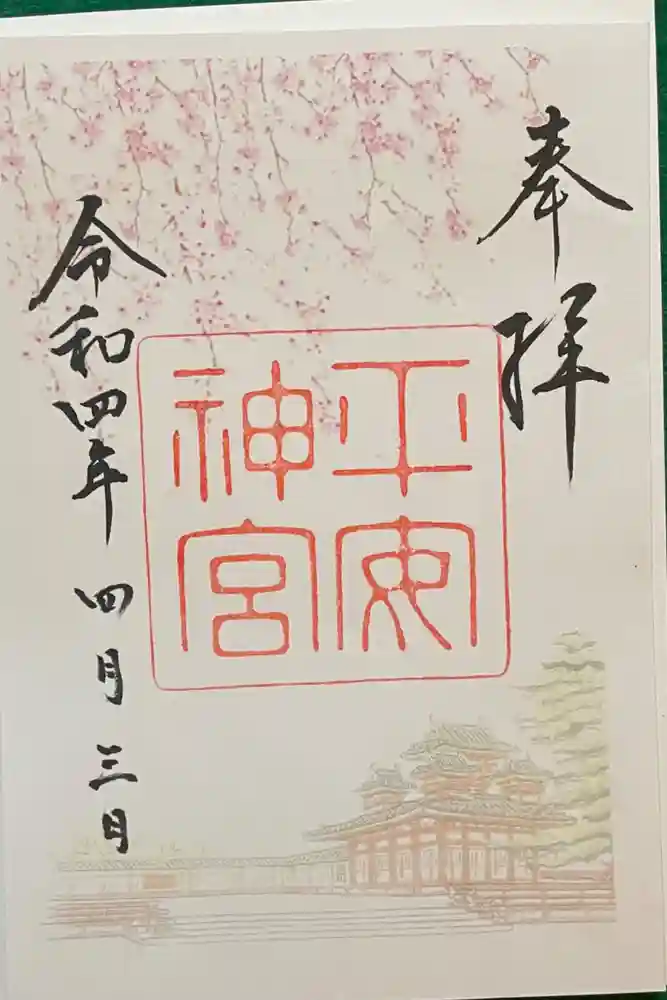 奉拝
平安
神宮
令和四年四月三日